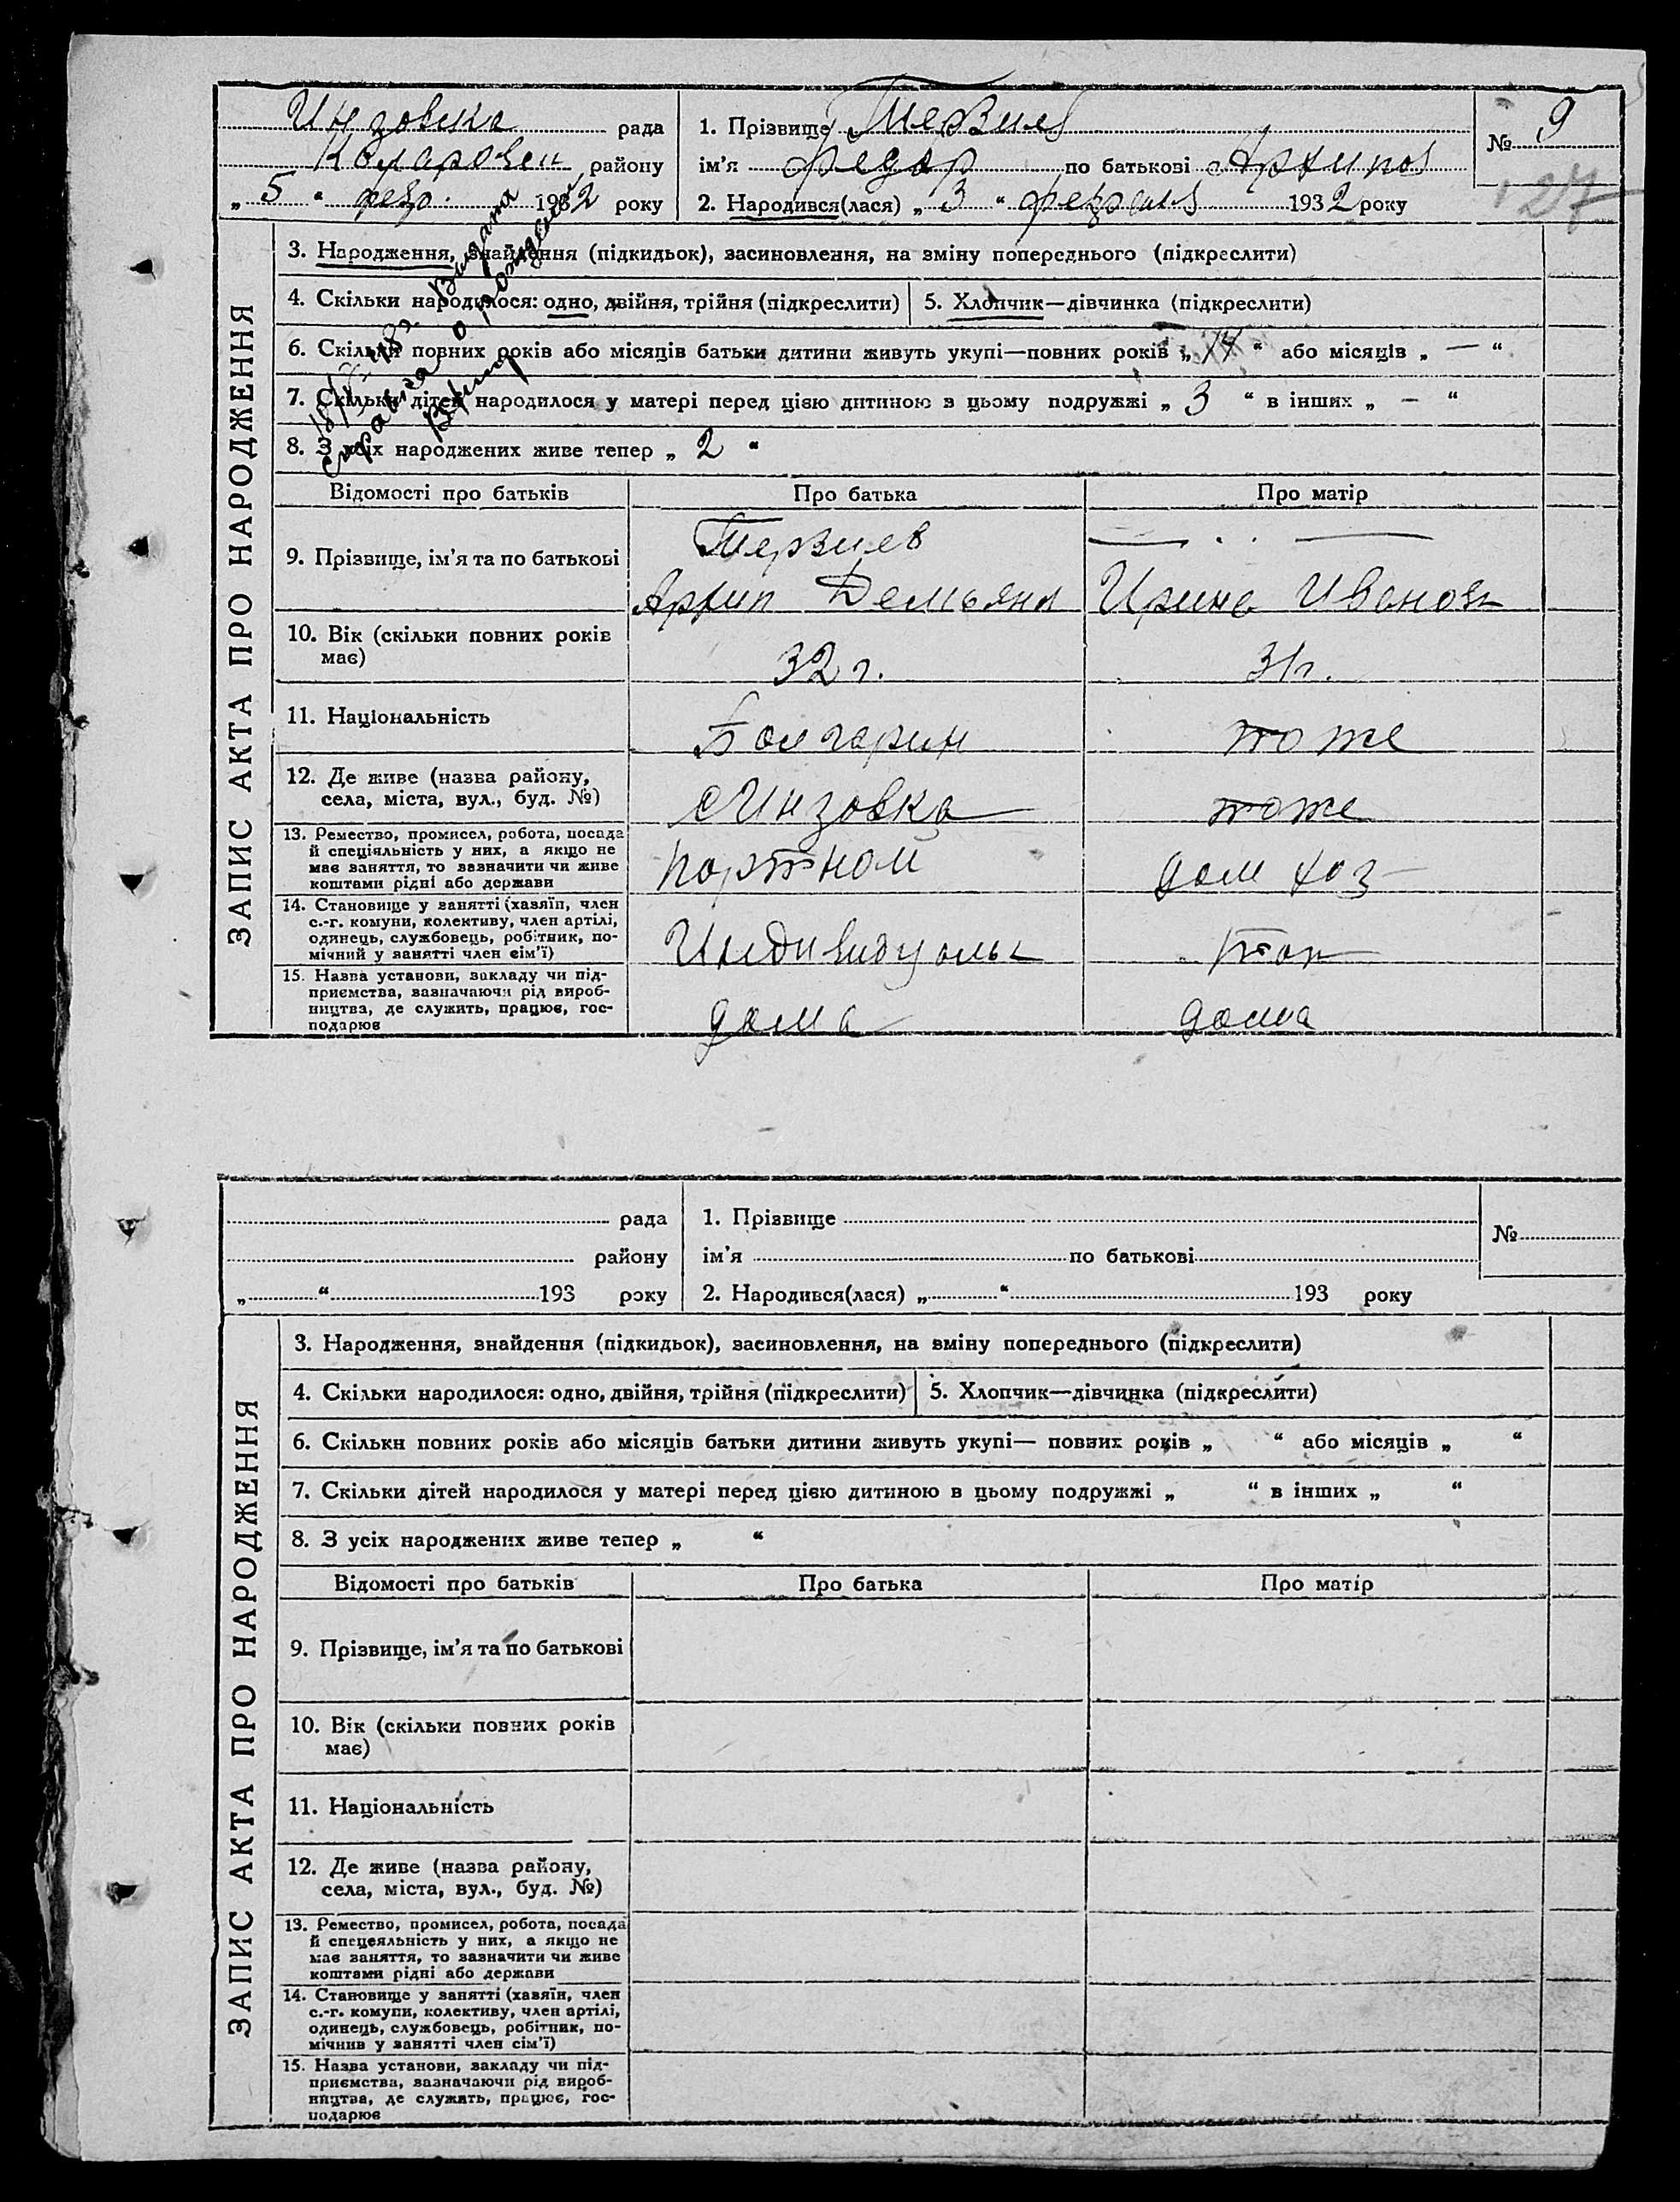 Инзовска рада
Коларовск району
„ 5 “ февр. 1932 року
1. Прізвище Терзиев
ім'я Федор по батькові Архипов
2. Народився(лася) „ 3 “ февраля 1932 року
№ 9
27
ЗАПИС АКТА ПРО НАРОДЖЕННЯ
3. Народження, знайдення (підкидьок), засиновлення, на зміну попереднього (підкреслити)
4. Скільки народилося: одно, двійня, трійня (підкреслити)
5. Хлопчик—дівчинка (підкреслити)
6. Скільки повних років або місяців батьки дитини живуть укупі—повних років „ 14 “ або місяців „ — “
7. Скільки дітей народилося у матері перед цією дитиною в цьому подружжі „ 3 “ в інших „ — “
8. З усіх народжених живе тепер „ 2 “
Выдана
справка о рождении
Відомості про батьків
Про батька
Про матір
9. Прізвище, ім'я та по батькові
Терзиев
Архип Демьянов
— . . —
Ирина Ивановн
10. Вік (скільки повних років
має)
32 г.
31 г.
11. Національність
Болгарин
тоже
12. Де живе (назва району,
села, міста, вул., буд. №)
с Инзовка
тоже
13. Ремество, промисел, робота, посада
й спеціяльність у них, а якщо не
має заняття, то зазначити чи живе
коштами рідні або держави
портной
дом хоз
14. Становище у занятті (хазяїн, член
с.-г. комуни, колективу, член артілі,
одинець, службовець, робітник, по-
мічний у занятті член сім'ї)
Индивидуальн
15. Назва установи, закладу чи під-
приємства, зазначаючи рід вироб-
ництва, де служить, працює, гос-
подарює
дома
дома
рада
району
„ “ 193 року
1. Прізвище
ім'я по батькові
2. Народився(лася) „ “ 193 року
№
ЗАПИС АКТА ПРО НАРОДЖЕННЯ
3. Народження, знайдення (підкидьок), засиновлення, на зміну попереднього (підкреслити)
4. Скільки народилося: одно, двійня, трійня (підкреслити)
5. Хлопчик—дівчинка (підкреслити)
6. Скільки повних років або місяців батьки дитини живуть укупі— повних років „ “ або місяців „ “
7. Скільки дітей народилося у матері перед цією дитиною в цьому подружжі „ “ в інших „ “
8. З усіх народжених живе тепер „ “
Відомості про батьків
Про батька
Про матір
9. Прізвище, ім'я та по батькові
10. Вік (скільки повних років
має)
11. Національність
12. Де живе (назва району,
села, міста, вул., буд. №)
13. Ремество, промисел, робота, посада
й спецеяльність у них, а якщо не
має заняття, то зазначити чи живе
коштами рідні або держави
14. Становище у занятті (хазяїн, член
с.-г. комуни, колективу, член артілі,
одинець, службовець, робітник, по-
мічнив у занятті член сім'ї)
15. Назва установи, закладу чи під-
приємства, зазначаючи рід вироб-
ництва, де служить, працює, гос-
подарює